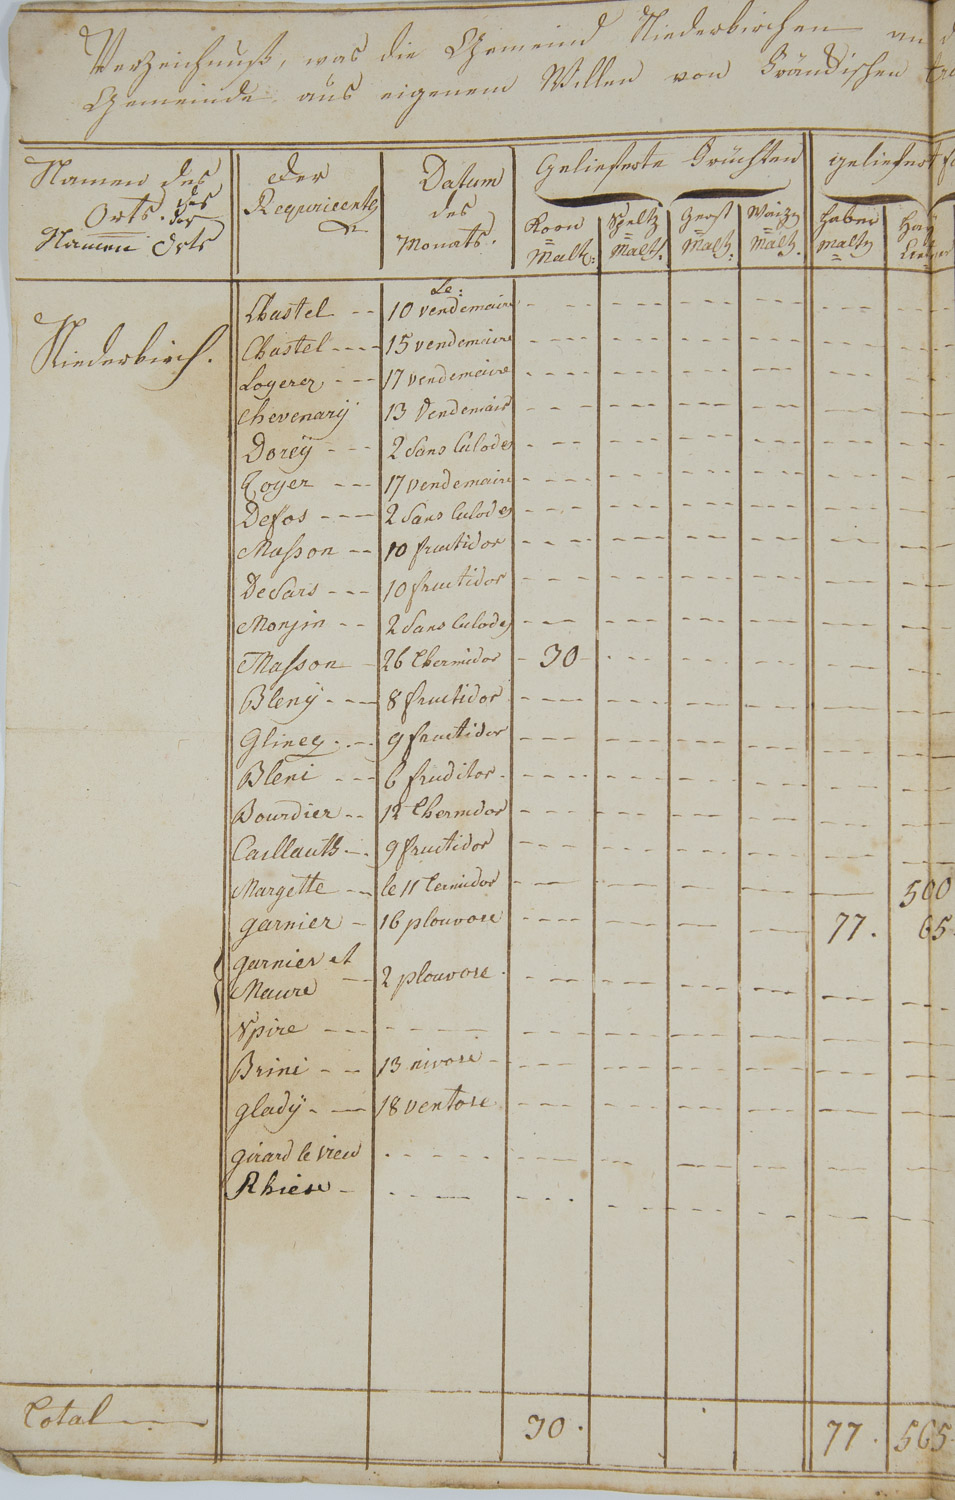 Verzeichnuß, was die Gemeind Niederkirchen an d
Gemeinde aus eigenem Willen von Fränckischen tr
Namen des
Orts. des
der
Namen Orts
Der
Requirirente
Datum
des
Monats.
Gelieferte Früchten
geliefert
Korn
Maltz.
Speltz
Maltz.
Gerst
Maltz.
Waitz
Maltz.
haber
maltz
Häy
Niederkirch.
Le:
Chastel -- 10 vendemaire
Chastel --- 15 vendemaire
Logerer --- 17 vendemaire
Chevenarÿ 13 Vendemair
Doreÿ --- 2 Sans Culodes
Toyer --- 17 vendemaire
Defos --- 2 Sans Culodes
Masson -- 10 fructidor
DeSars --- 10 fructidor
Monjin -- 2 Sans Culodes
Masson - 26 Thermidor - 30 -
Blenÿ --- 8 fructidor
Glineg --- 9 fructidor
Bleni --- 6 fruditor
Bourdier -- 12 Thermdor
Caillauth -- 9 fructidor
Margette -- le 11 Termidor 500
garnier - 16 plouvose 77. 65
garnier et
Maure -- 2 plouvose
Spire ---
Brini -- 13 nivose
gladÿ -- 18 ventose
girard le vieu
Rhiese -
Total 30. 77. 565